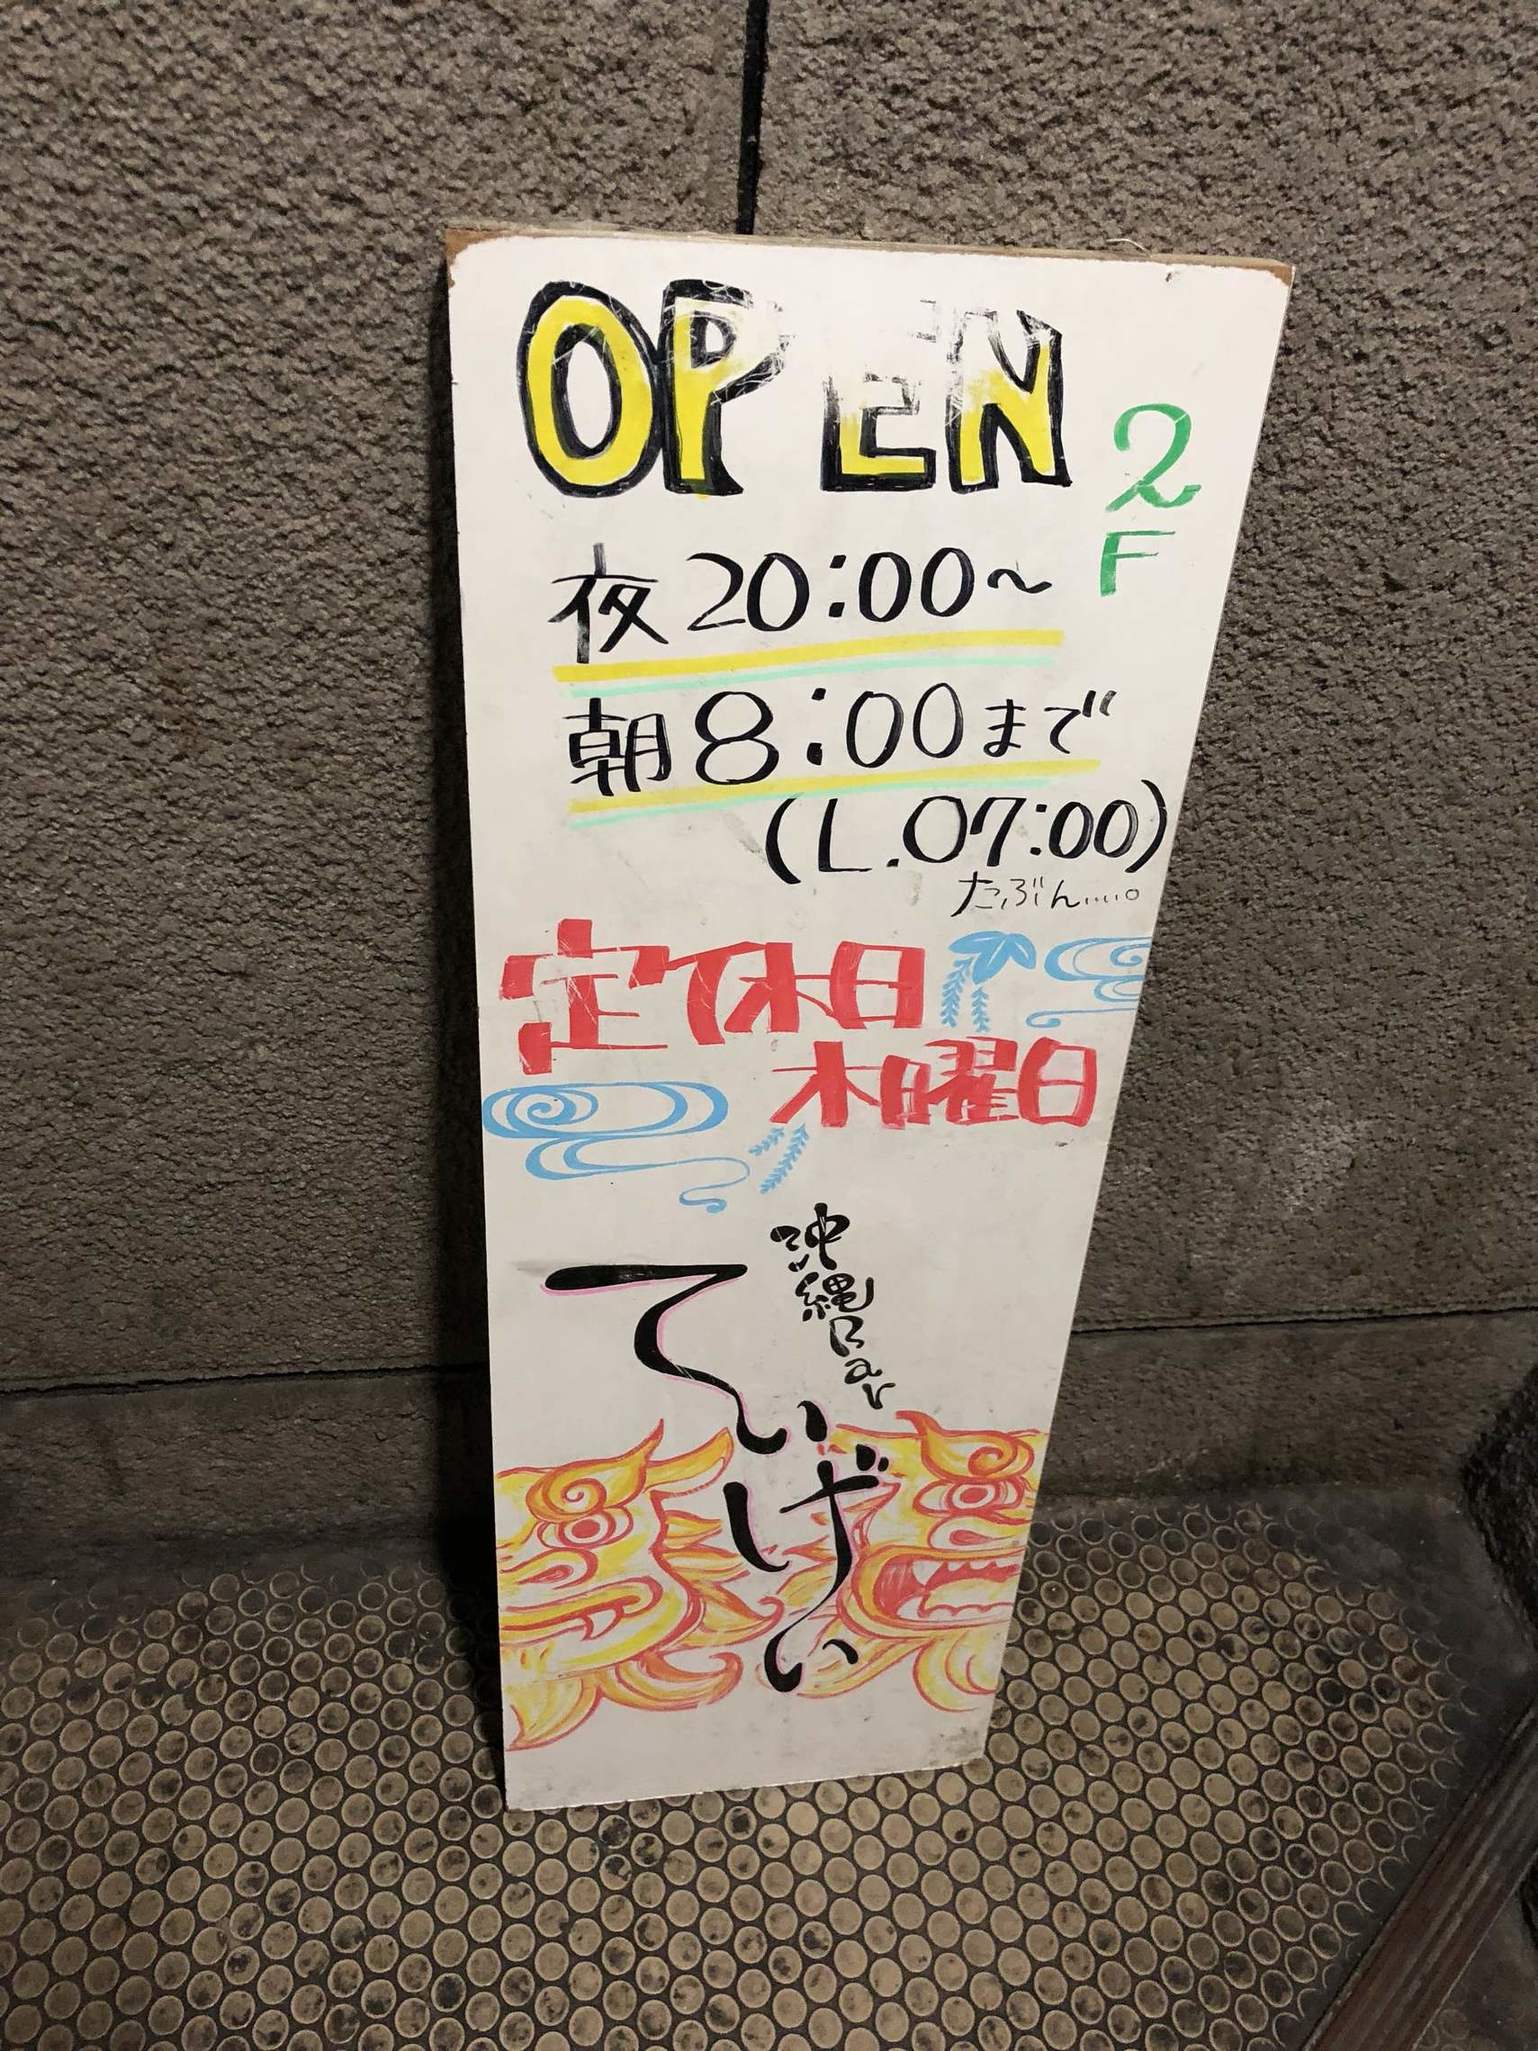 OPEN
2F
夜20:00～
朝8:00まで
(L.O7:00)
たぶん.....。
定休日
木曜日
沖縄Bar
てぃげぃ